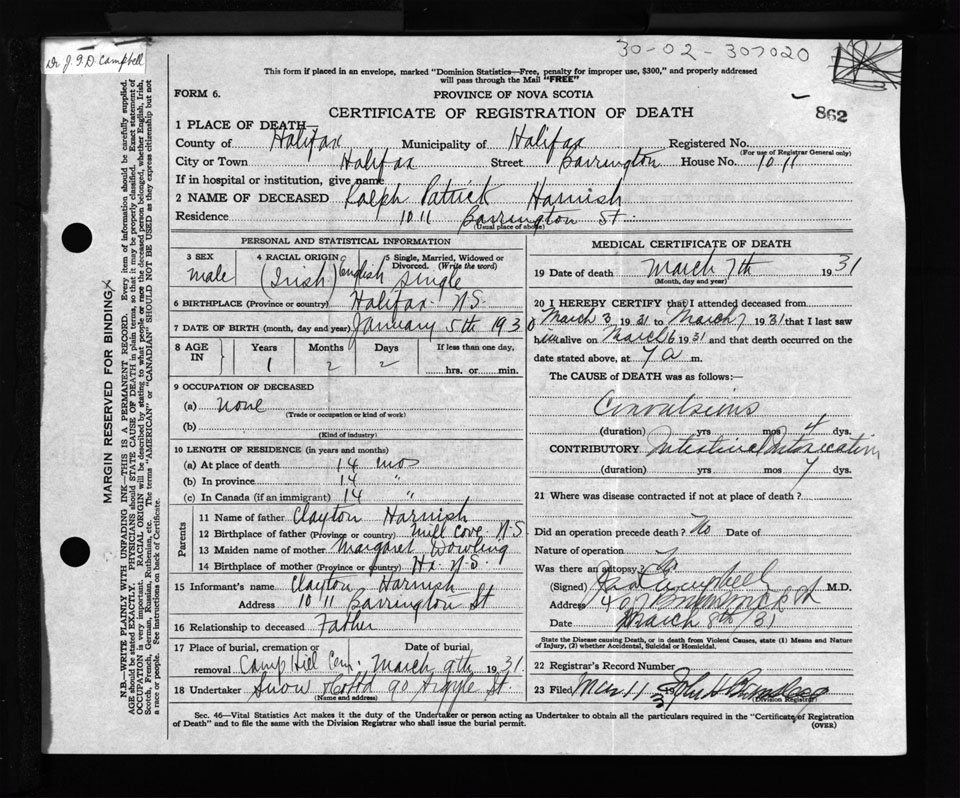 Dr J. G. D. Campbell
30-02-307020
This form if placed in an envelope, marked "Dominion Statistics—Free, penalty for improper use, $300," and properly addressed
will pass through the Mail "FREE"
FORM 6.
PROVINCE OF NOVA SCOTIA
CERTIFICATE OF REGISTRATION OF DEATH
862
1 PLACE OF DEATH—
County of Halifax Municipality of Halifax Registered No.
(For use of Registrar General only)
City or Town Halifax Street Barrington House No. 1011
If in hospital or institution, give name
2 NAME OF DECEASED Ralph Patrick Harnish
Residence 1011 Barrington St
(Usual place of abode)
PERSONAL AND STATISTICAL INFORMATION
3 SEX
male
4 RACIAL ORIGIN
(Irish) English
5 Single, Married, Widowed or
Divorced. (Write the word)
Single
6 BIRTHPLACE (Province or country) Halifax N.S.
7 DATE OF BIRTH (month, day and year) January 5th 1930
8 AGE
IN
Years
1
Months
2
Days
2
If less than one day,
hrs. or min.
9 OCCUPATION OF DECEASED
(a) none
(Trade or occupation or kind of work)
(b)
(Kind of industry)
10 LENGTH OF RESIDENCE (in years and months)
(a) At place of death 14 mos
(b) In province 14 "
(c) In Canada (if an immigrant) 14 "
Parents
11 Name of father Clayton Harnish
12 Birthplace of father (Province or country) Mill Cove N.S.
13 Maiden name of mother Margaret Dowling
14 Birthplace of mother (Province or country) Hx. N.S.
15 Informant's name Clayton Harnish
Address 1011 Barrington St
16 Relationship to deceased Father
17 Place of burial, cremation or
removal Camp Hill Cem.
Date of burial
March 9th 1931.
18 Undertaker Snow & Co Ltd 90 Argyle St.
(Name and address)
MEDICAL CERTIFICATE OF DEATH
19 Date of death March 7th 1931
(Month, day and year)
20 I HEREBY CERTIFY that I attended deceased from
March 3 1931 to March 7 1931 that I last saw
him alive on March 6 1931 and that death occurred on the
date stated above, at 7 a m.
The CAUSE of DEATH was as follows:—
Convulsions
(duration) yrs mos 4 dys.
CONTRIBUTORY Intestinal Intoxication
(duration) yrs mos 7 dys.
21 Where was disease contracted if not at place of death?
Did an operation precede death? No Date of
Nature of operation
Was there an autopsy? No
(Signed) Campbell M.D.
Address
Date March 8th/31
State the Disease causing Death, or in death from Violent Causes, state (1) Means and Nature
of Injury, (2) whether Accidental, Suicidal or Homicidal.
22 Registrar's Record Number
23 Filed Mar 11 1931 John H
(Division Registrar)
Sec. 46—Vital Statistics Act makes it the duty of the Undertaker or person acting as Undertaker to obtain all the particulars required in the "Certificate of Registration
of Death" and to file the same with the Division Registrar who shall issue the burial permit.
(OVER)
MARGIN RESERVED FOR BINDING
N.B.—WRITE PLAINLY WITH UNFADING INK—THIS IS A PERMANENT RECORD. Every item of information should be carefully supplied.
AGE should be stated EXACTLY. PHYSICIANS should STATE CAUSE OF DEATH in plain terms, so that it may be properly classified. Exact statement of
OCCUPATION is very important. RACIAL ORIGIN will be described by stating to what people or race the deceased person belonged, whether English, Irish,
Scotch, French, German, Russian, Ruthenian, etc. The terms "AMERICAN" or "CANADIAN" SHOULD NOT BE USED as they express citizenship but not
a race or people. See instructions on back of Certificate.